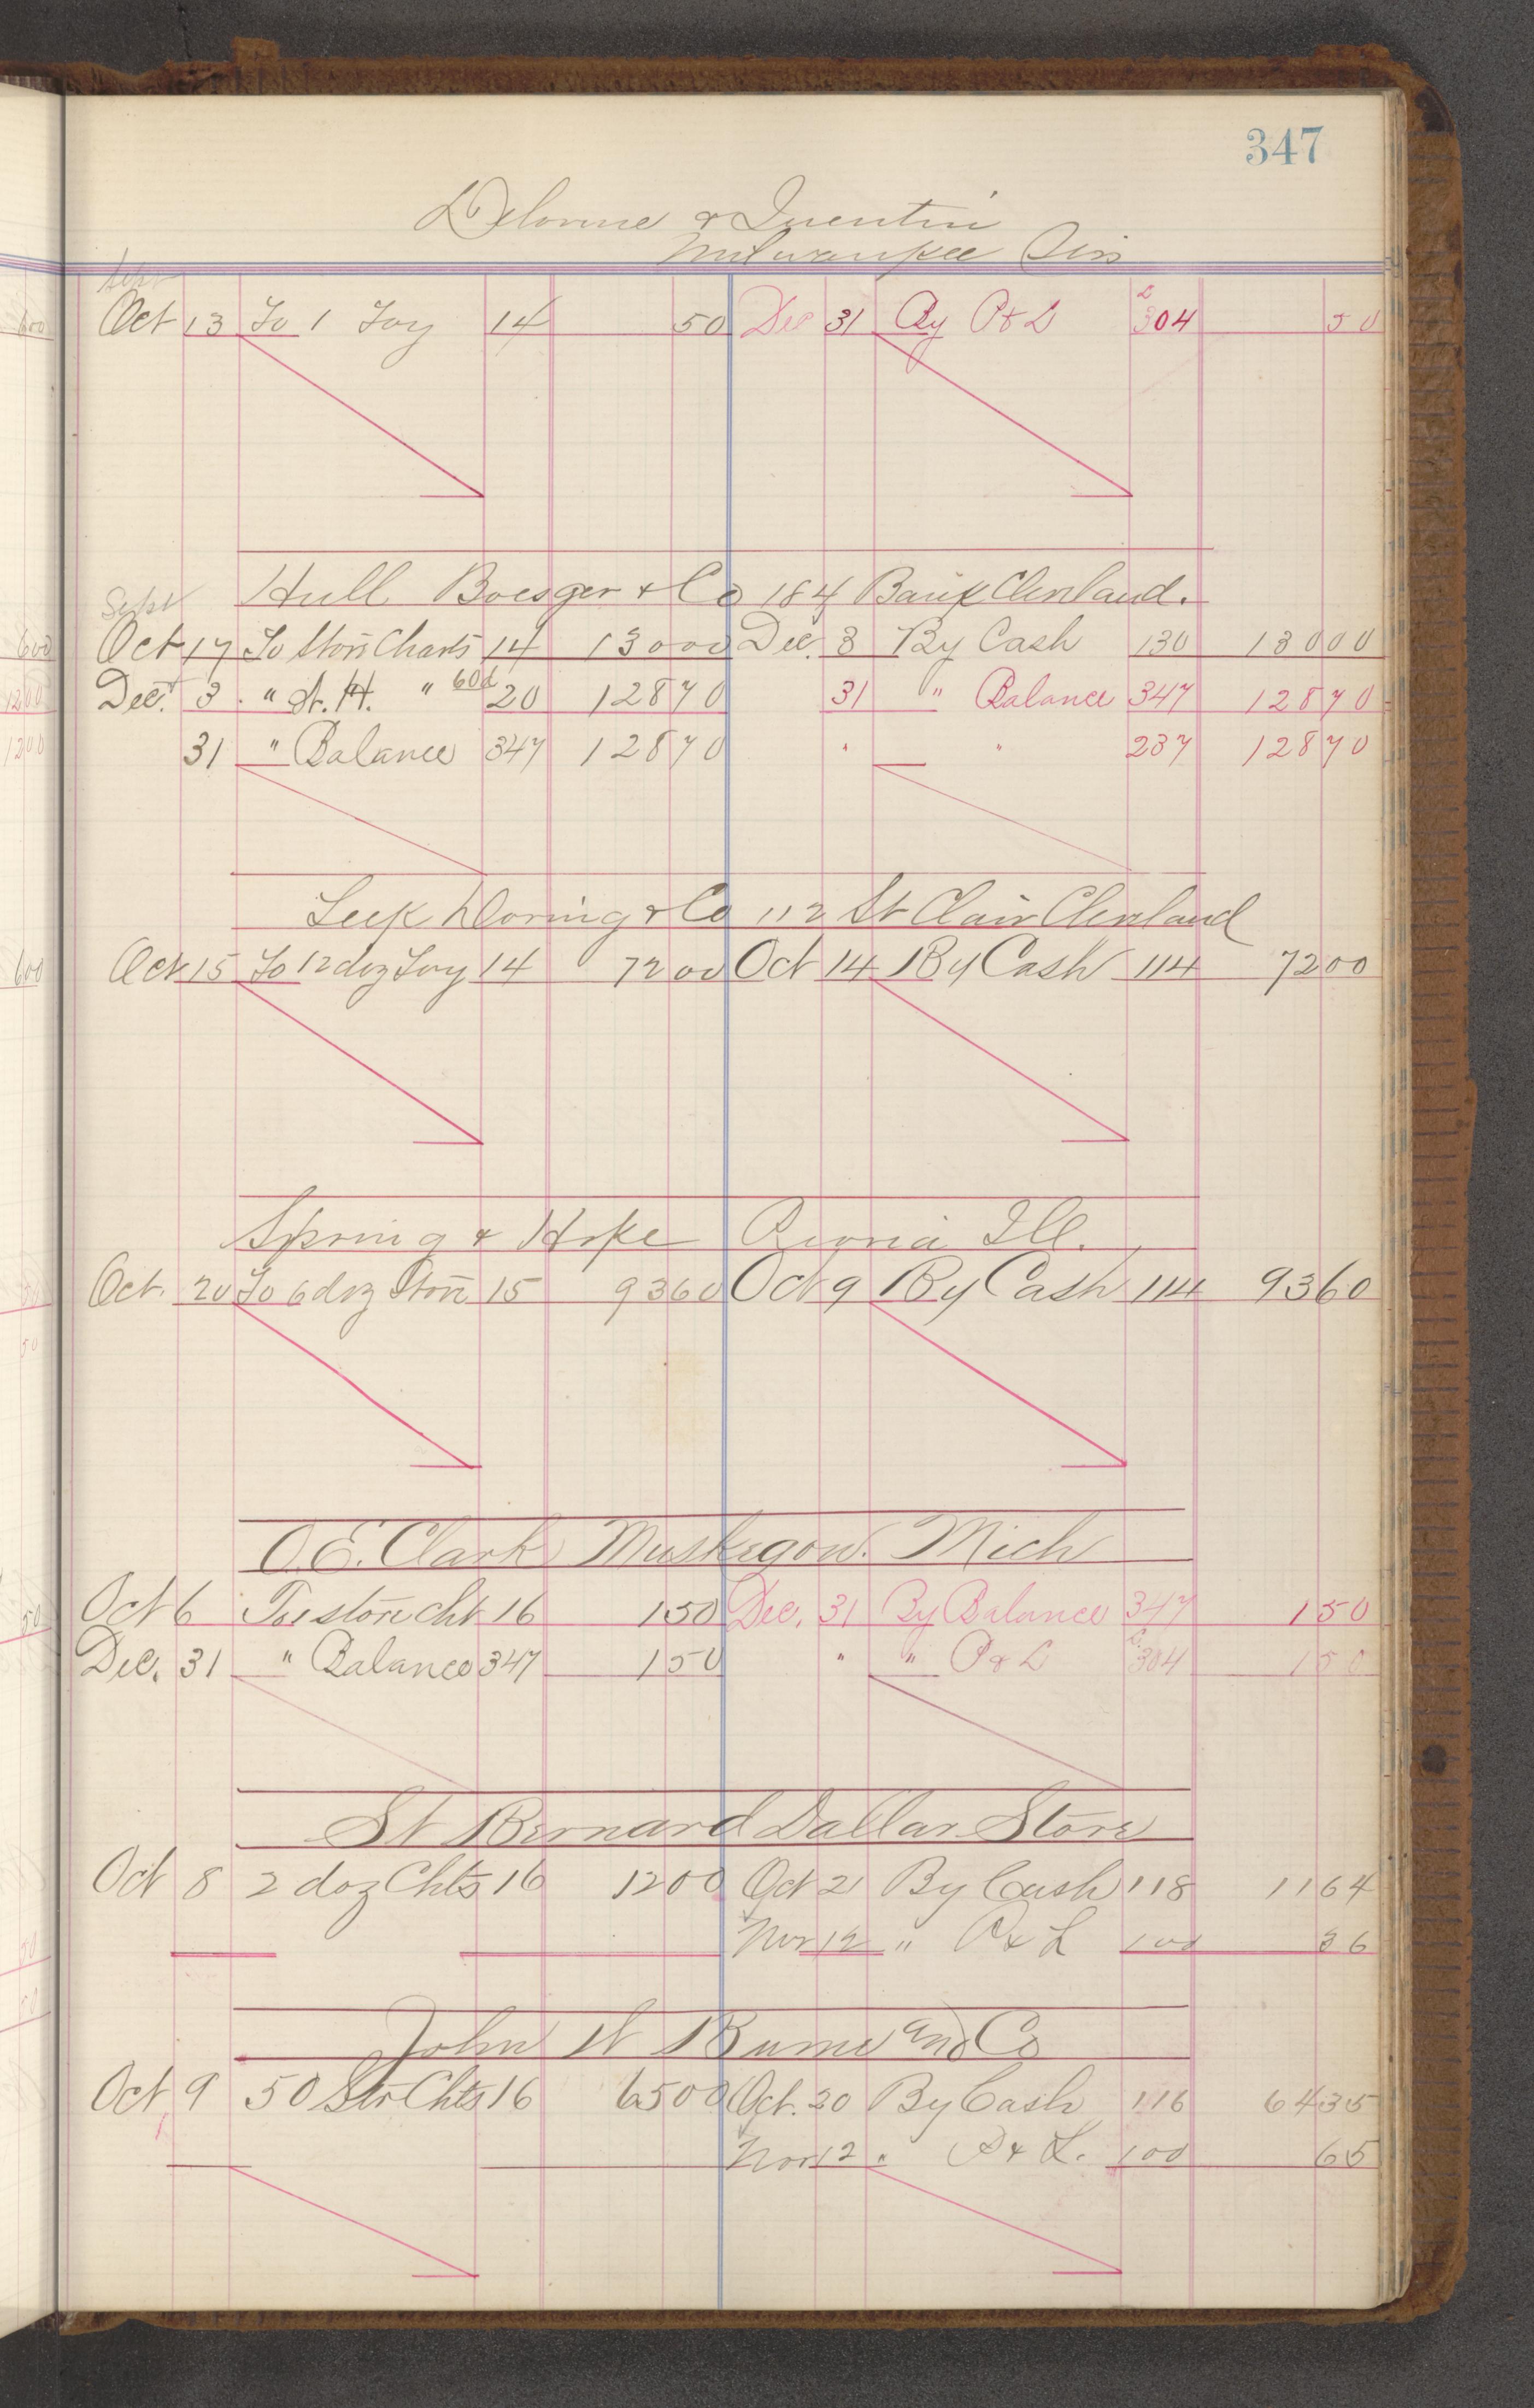 347
Delorme & Quentin
Milwaukee Wis
Sept
Oct 13 To 1 Toy 14 50 Dec 31 By P & L L 304 50
Hull Boesger & Co 184 Bank Clevland.
Sept
Oct 17 To Store Charts 14 130 00 Dec. 3 By Cash 130 130 00
Dec. 3 " St. H. " 60d 20 128 70 31 " Balance 347 128 70
31 " Balance 347 128 70 " " 237 128 70
Leek Doring & Co 112 St Clair Clevland
Oct 15 To 12 doz Toy 14 72 00 Oct 14 By Cash 114 72 00
Spring & Hope Peoria Ill.
Oct. 20 To 6 doz Store 15 93 60 Oct 9 By Cash 114 93 60
O.E. Clark Muskegon. Mich
Oct 6 To 1 store cht 16 1 50 Dec. 31 By Balance 347 1 50
Dec. 31 " Balance 347 1 50 " " P & L L 304 1 50
St Bernard Dollar Store
Oct 8 2 doz Chts 16 12 00 Oct 21 By Cash 118 11 64
Nov 12 " P & L 100 36
John W Bume and Co
Oct 9 50 Str Chts 16 65 00 Oct. 20 By Cash 116 64 35
Nov 12 " P & L. 100 65